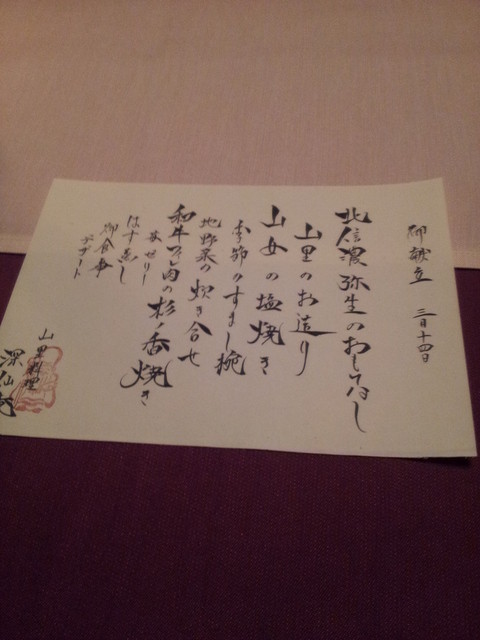 御献立 三月十四日
北信濃 弥生のおもてなし
山里のお造り
山女の塩焼き
季節のすまし椀
地野菜の炊き合せ
和牛ヒレ肉の杉ノ香焼き
芹 ゼリー
はす蒸し
御食事
デザート
山里料理
深仙庵